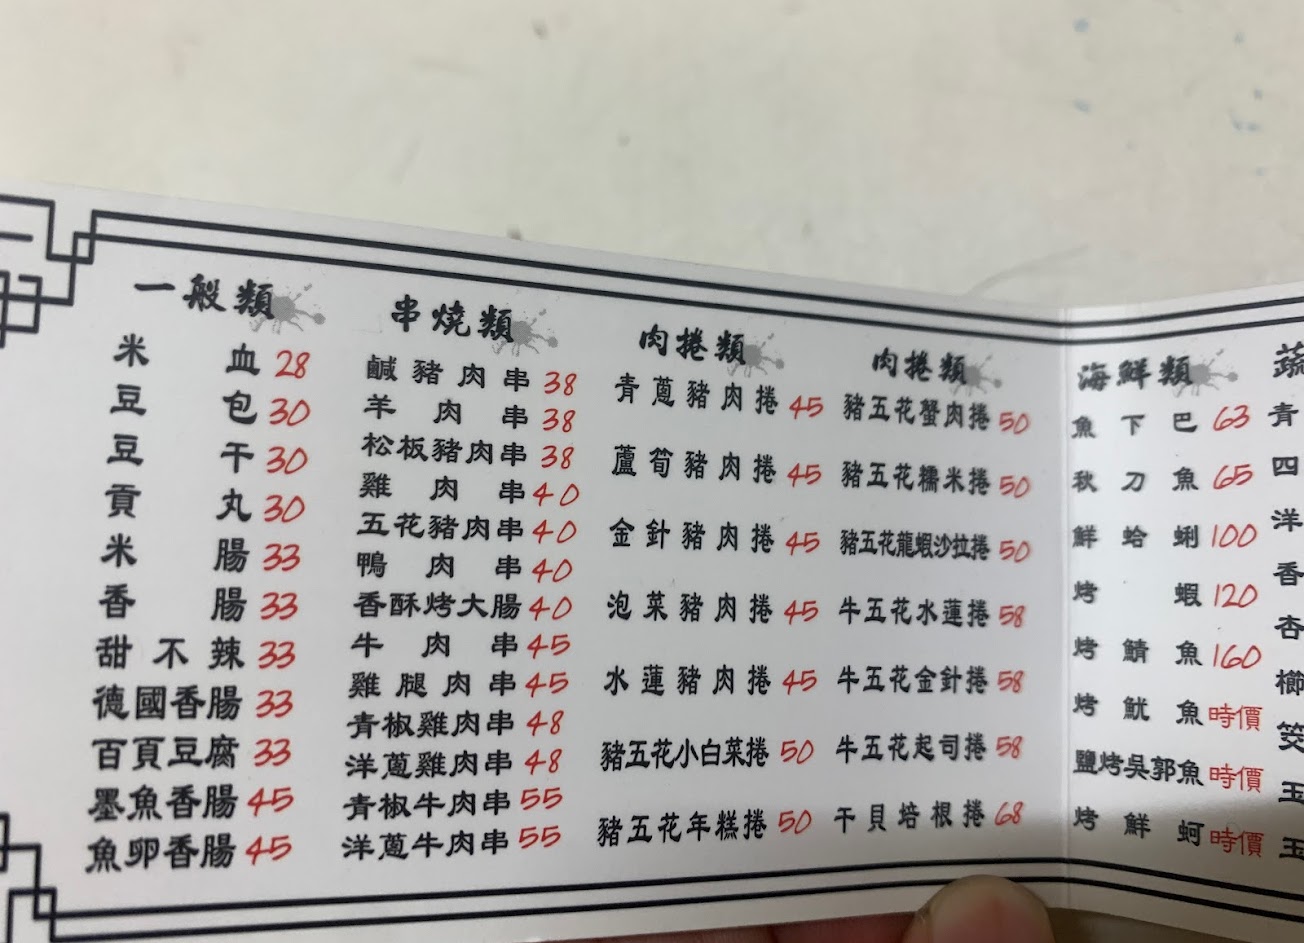 一般類
米血 28
豆包 30
豆干 30
貢丸 30
米腸 33
香腸 33
甜不辣 33
德國香腸 33
百頁豆腐 33
墨魚香腸 45
魚卵香腸 45
串燒類
鹹豬肉串 38
羊肉串 38
松板豬肉串 38
雞肉串 40
五花豬肉串 40
鴨肉串 40
香酥烤大腸 40
牛肉串 45
雞腿肉串 45
青椒雞肉串 48
洋蔥雞肉串 48
青椒牛肉串 55
洋蔥牛肉串 55
肉捲類
青蔥豬肉捲 45
蘆筍豬肉捲 45
金針豬肉捲 45
泡菜豬肉捲 45
水蓮豬肉捲 45
豬五花小白菜捲 50
豬五花年糕捲 50
肉捲類
豬五花蟹肉捲 50
豬五花糯米捲 50
豬五花龍蝦沙拉捲 50
牛五花水蓮捲 58
牛五花金針捲 58
牛五花起司捲 58
干貝培根捲 68
海鮮類
魚下巴 63
秋刀魚 65
鮮蛤蜊 100
烤蝦 120
烤鯖魚 160
烤魷魚 時價
鹽烤吳郭魚 時價
烤鮮蚵 時價
蔬
青
四
洋
香
杏
櫛
筊
玉
玉